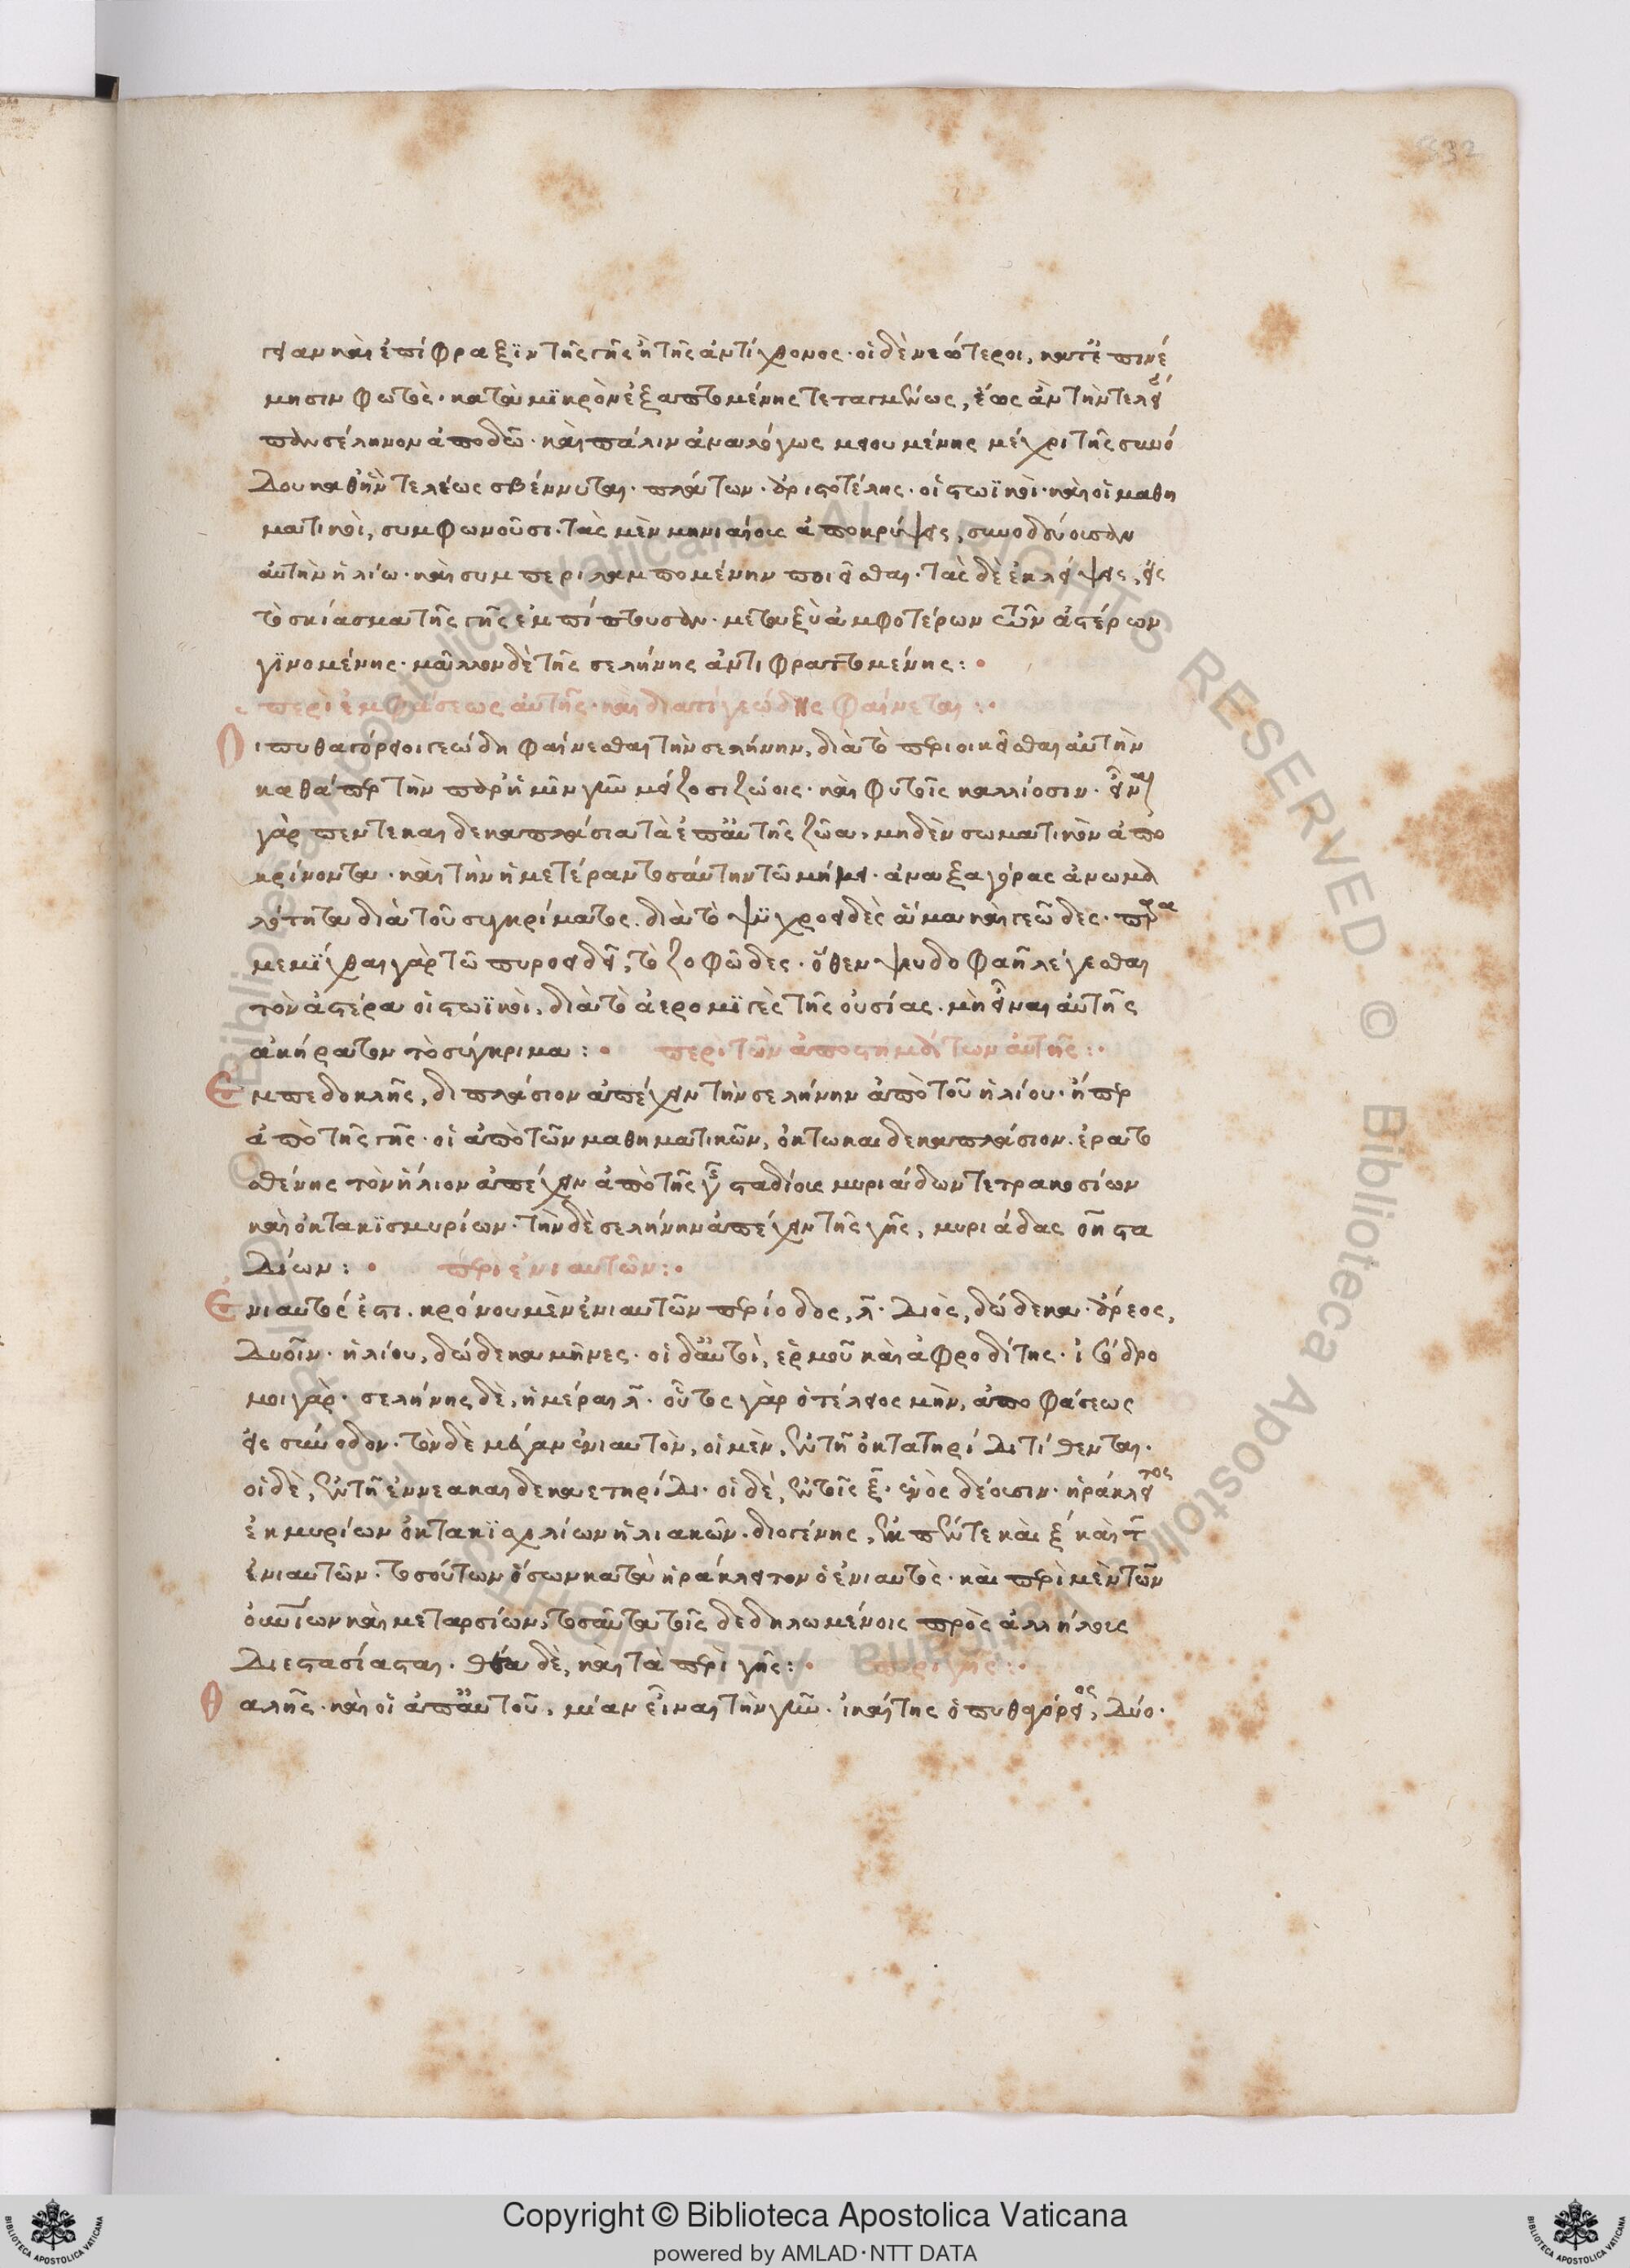 832
γειαν καὶ ἐπίφραξϊν τῆς γῆς ἢ τῆς ἀντίχθονος· οἱ δὲ νεώτεροι, κατ' ἐπινέ
μησιν φωτὸς· κατὰ μϊκρὸν ἐξαπτομένης τεταγμένως, ἕως ἂν τὴν τελεί
παν σέληνον ἀποδῶ· καὶ πάλιν ἀναλόγως μειουμένης μέχρι τῆς συνό
δου καθ' ἣν τελέως σβέννυται· πλάτων· ἀριστοτέλης· οἱ στωϊκοὶ· καὶ οἱ μαθη
ματικοὶ, συμφωνοῦσι· τὰς μὲν μηνιαίους ἀποκρύψεις, συνοδεύουσαν
αὐτὴν ἡλίω· καὶ συμπεριλαμπομένην ποιεῖσθαι· τὰς δὲ ἐκλείψεις, εἰς
τὸ σκίασμα τῆς γῆς ἐμπίπτουσαν· μεταξὺ ἀμφοτέρων τῶν ἀστέρων
γϊνομένης· μᾶλλον δὲ τῆς σελήνης ἀντιφραττομένης:
περὶ ἐμφάσεως αὐτῆς· καὶ διατί γεώδης φαίνεται:
Οἱ πυθαγόρειοι γεώδη φαίνεσθαι τὴν σελήνην, διὰ τὸ περιοικεῖσθαι αὐτὴν
καθάπερ τὴν παρ' ἡμῖν γῆν μείζοσι ζώοις· καὶ φυτοῖς καλλίοσιν· εἶναι
γὰρ πεντεκαιδεκαπλάσια τὰ ἐπ' αὐτῆς ζῶα, μηδὲν σωματικὸν ἀπο
κρίνοντα· καὶ τὴν ἡμετέραν τοσαύτην τῶ μήκει· ἀναξαγόρας ἀνωμα
λότητα διὰ τοῦ συγκρίματος. διὰ τὸ ψϋχροειδὲς ἅμα καὶ γεῶδες· παρα
μεμῖχθαι γὰρ τῶ πυροειδεῖ, τὸ ζοφῶδες· ὅθεν ψευδοφαῆ λέγεσθαι
τὸν ἀστέρα οἱ στωϊκοὶ, διὰ τὸ ἀερομϊγὲς τῆς οὐσίας. μὴ εἶναι αὐτῆς
ἀκήρατον τὸ σύγκριμα: περὶ τῶν ἀποστημάτων αὐτῆς:
Ἐμπεδοκλῆς, διπλάσιον ἀπέχειν τὴν σελήνην ἀπὸ τοῦ ἡλίου· ἤπερ
ἀπὸ τῆς γῆς· οἱ ἀπὸ τῶν μαθηματικῶν, ὀκτωκαιδεκαπλάσιον· ἐρατο
σθένης τὸν ἥλιον ἀπέχειν ἀπὸ τῆς γῆς σταδίους μυριάδων τετρακοσίων
καὶ ὀκτακϊσμυρίων· τὴν δὲ σελήνην ἀπέχειν τῆς γῆς, μυριάδας οη στα
δίων: περὶ ἐνιαυτῶν:
Ἐνιαυτός ἐστι· κρόνου μὲν ἐνιαυτῶν περίοδος, λ· Διὸς, δώδεκα· ἄρεος,
Δυοῖν· ἡλίου, δώδεκα μῆνες· οἱ δ' αὐτοὶ, ἑρμοῦ καὶ ἀφροδίτης· ἰσόδρο
μοι γὰρ· σελήνης δὲ, ἡμέραι λ· οὗτος γὰρ ὁ τέλειος μὴν, ἀπὸ φάσεως
εἰς σύνοδον· τὸν δὲ μέγαν ἐνιαυτὸν, οἱ μὲν, ἐν τῆ ὀκταετηρίδι τίθενται·
οἱ δὲ, ἐν τῆ ἐννεακαιδεκαετηρίδι· οἱ δέ, ἐν τοῖς ξ ἑνὸς δέουσιν· ἡράκλειτος
ἐκ μυρίων ὀκτακϊσχιλίων ἡλιακῶν· διογένης, ἐκ πέντε καὶ ξ καὶ τ
ἐνιαυτῶν· τοσούτων ὅσων κατὰ ἡράκλειτον ὁ ἐνιαυτὸς· καὶ περὶ μὲν τῶν
οὐρανίων καὶ μεταρσίων, τοσαῦτα τοῖς δεδηλωμένοις πρὸς ἀλλήλους
Διεστασίασται· θέα δὲ, καὶ τὰ περὶ γῆς: περὶ γῆς:
Θαλῆς· καὶ οἱ ἀπ' αὐτοῦ, μίαν εἶναι τὴν γῆν· ἱκέτης ὁ πυθαγόρειος, Δύο·
Copyright © Biblioteca Apostolica Vaticana
powered by AMLAD·NTT DATA